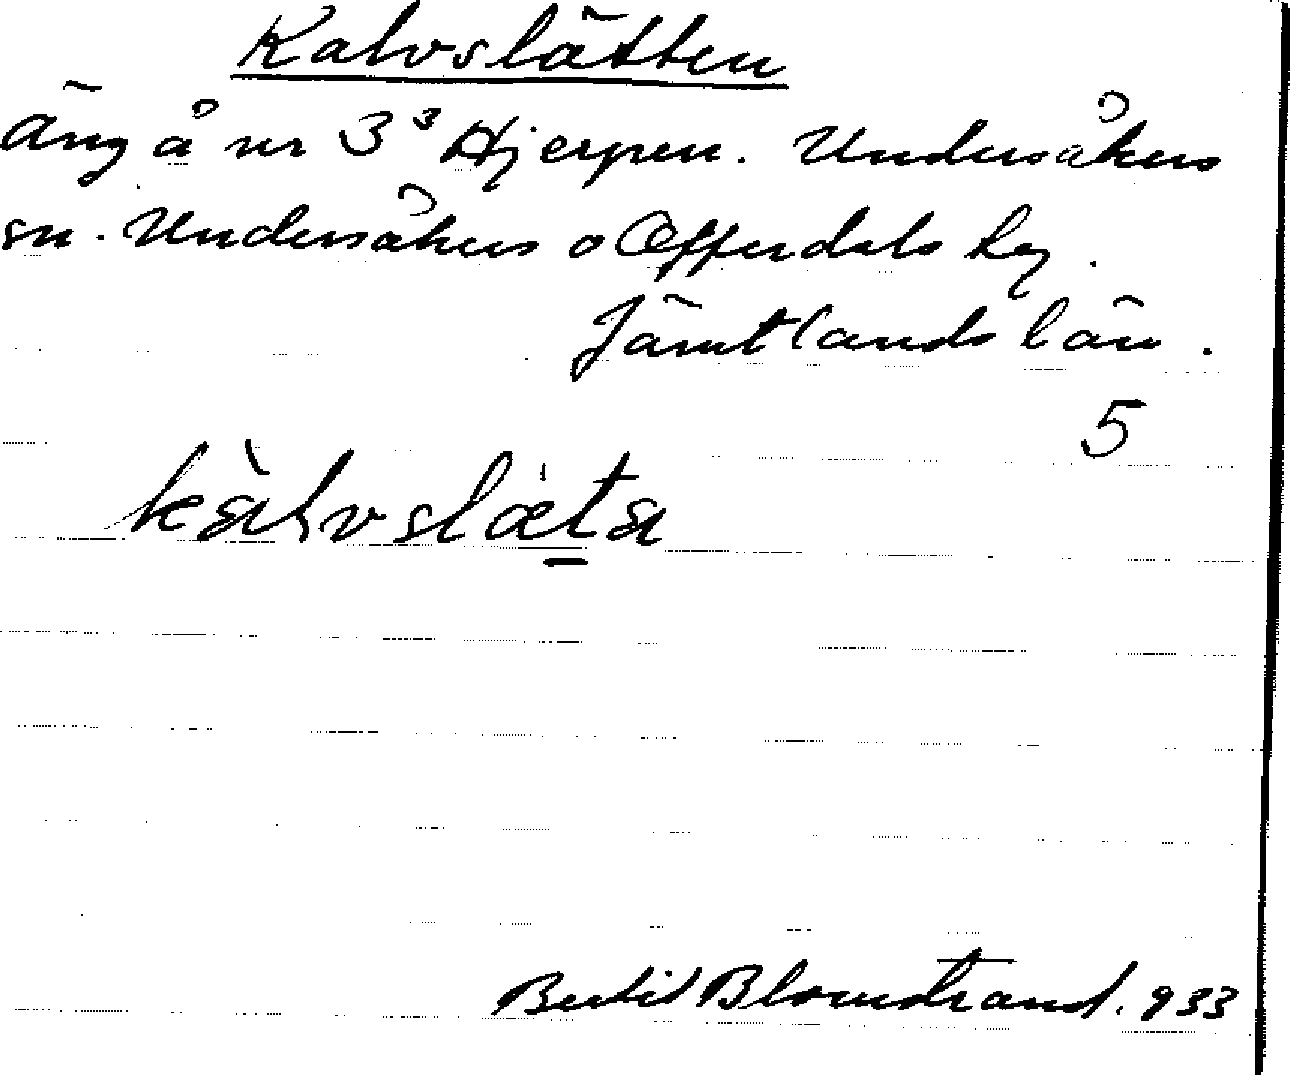 Kalvslätten
Äng å nr 3³ Hjerpen. Undersåkers
sn. Undersåkers o Offerdals tg.
Jämtlands län.
5
kàlvslæta
Bertil Blomstrand. 933